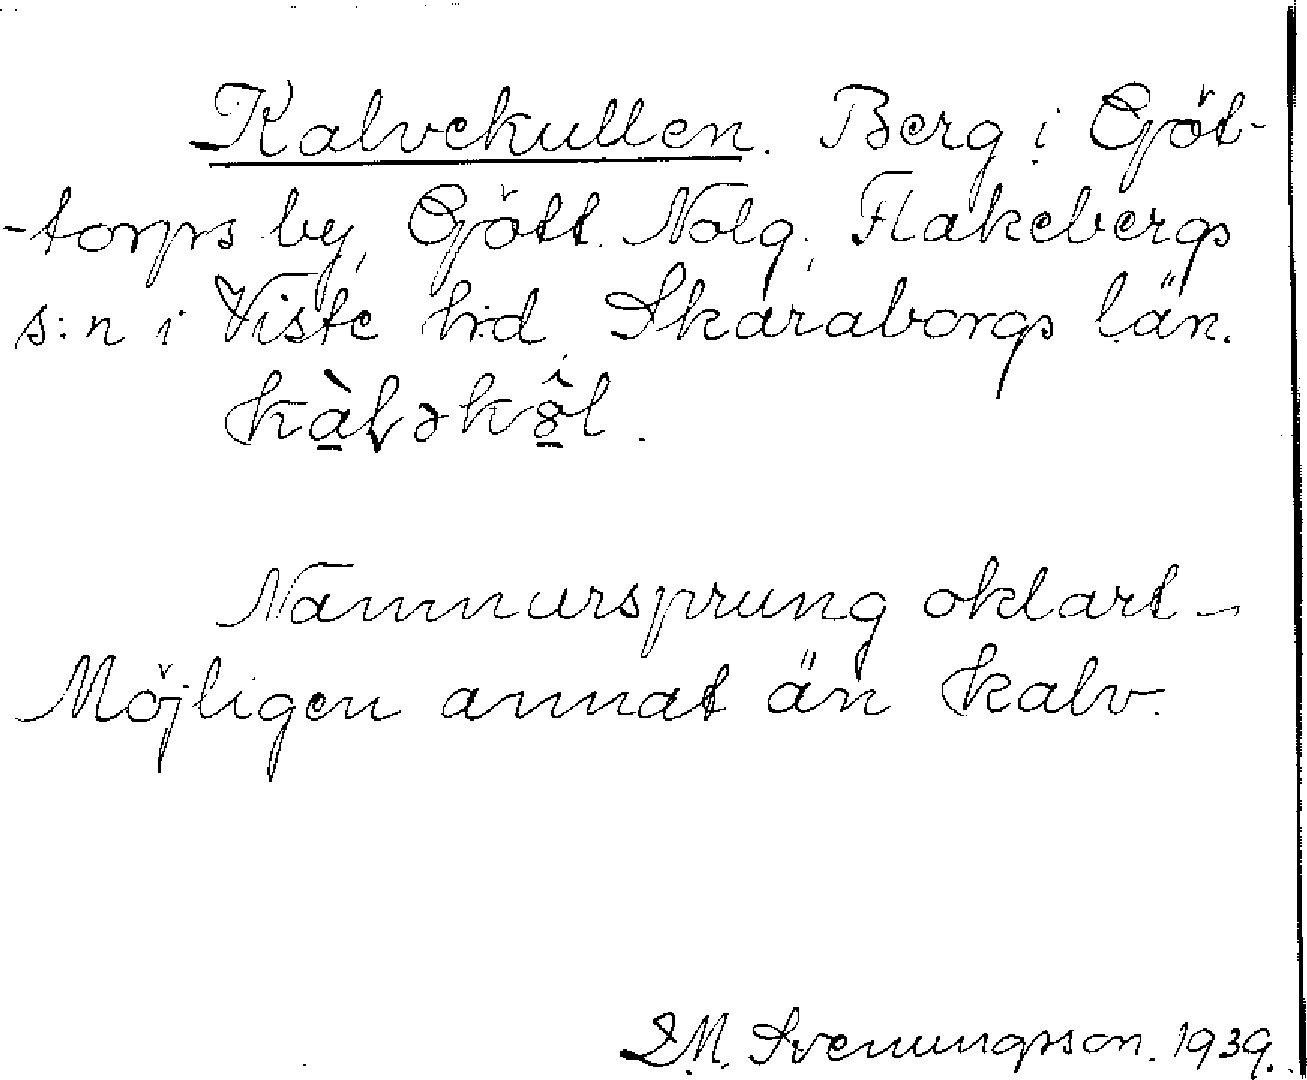 Kalvekullen. Berg i Göt-
-torps by, Gött. Nolg., Flakebergs
s:n i Viste h:d, Skaraborgs län.
Namnursprung oklart –
Möjligen annat än kalv.
M. Svenungsson. 1939.